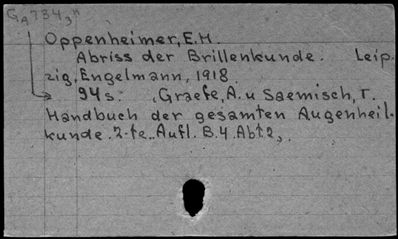 GA 7343 н
Oppenheimer, E.H.
Abriss der Brillenkunde. Leip-
zig, Engelmann, 1918.
94 s. Graefe, A. u Saemisch, T.
Handbuch der gesamten Augenheil-
kunde. 2-te.. Aufl. B. 4. Abt 2,.